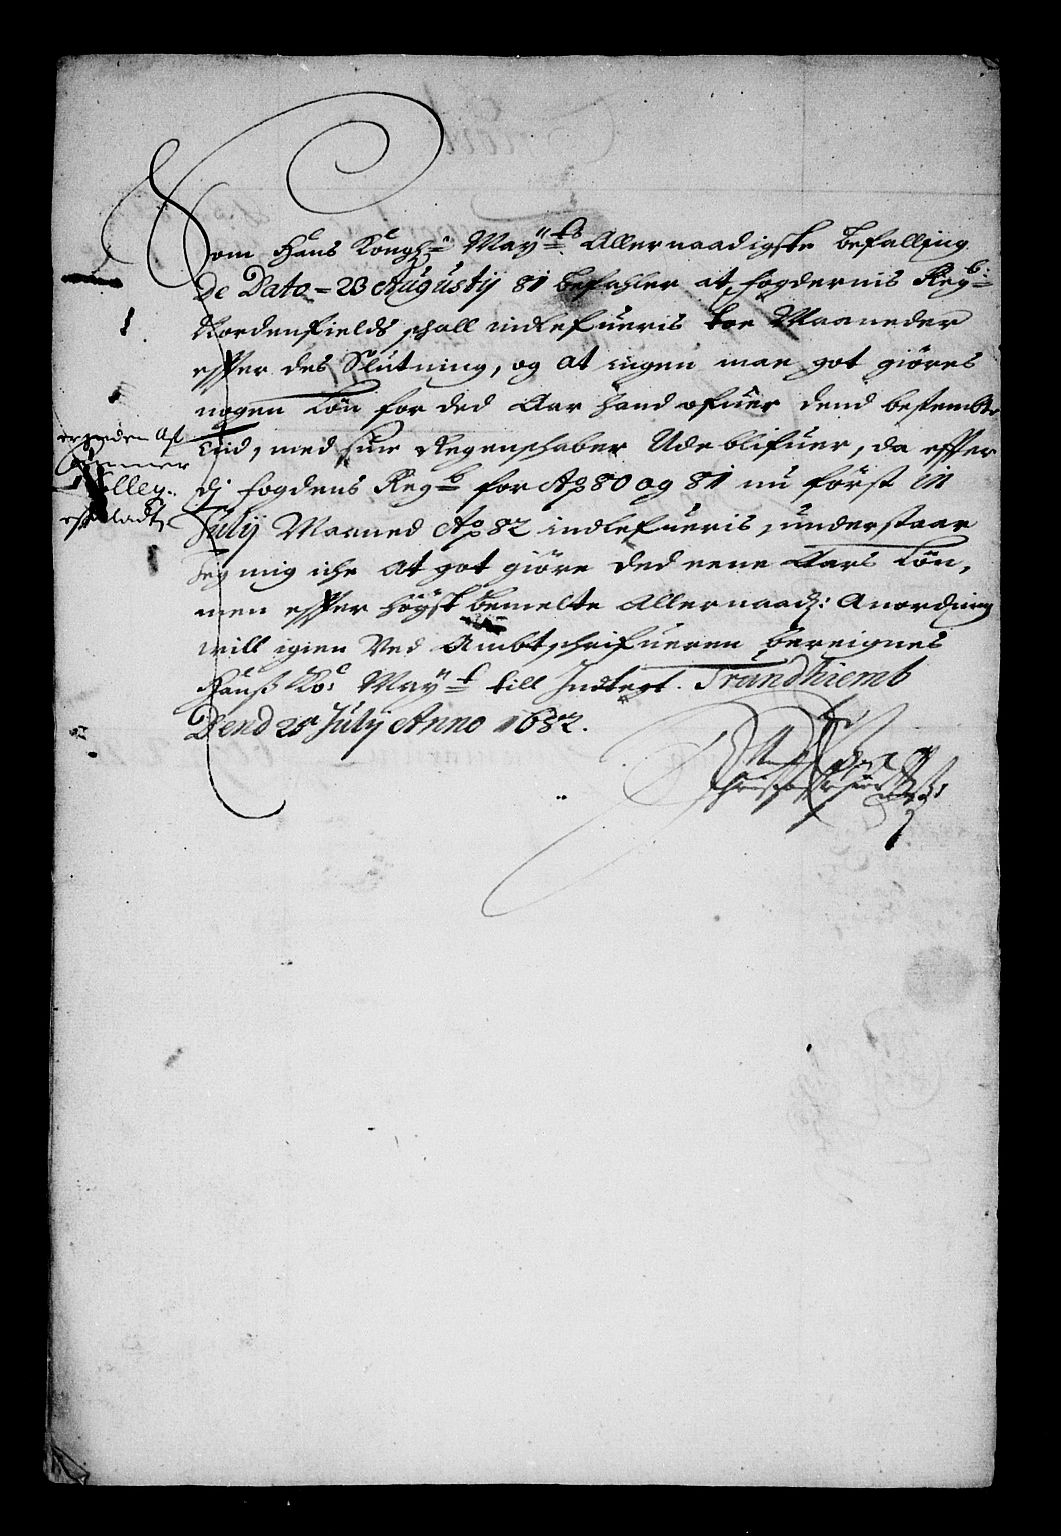 Som Hans Kongl: May:ts Allernaadigste befalling
De Dato = 23 Augustij 81 befahler at fogdernis Regb:
Nordenfields schall indlefueris toe Maaneder
effter des Slutning, og at ingen maa got giöres
nogen Lön for ded Aar hand ofuer dend bestembte
tiid, med sine Regenschaber Udeblifuer, da effter
dj fogdens Regb for Ao 80 og 81 nu först in
Julij Maaned Ao 82 indlefueris, understaar
Jeg mig iche at got giöre ded eene Aars Lön,
men effter högst bemelte Allernaad: Anordning
will igien Ved Ambtschrifueren bereignes
Hanß Ko: May:t till Indtegt. Trundhiemb
Dend 25 Julij Anno 1682.